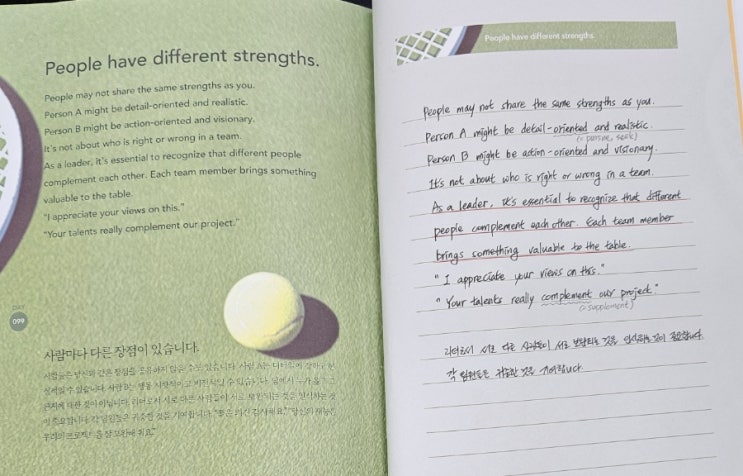 People have different strengths.
People may not share the same strengths as you.
Person A might be detail-oriented and realistic.
Person B might be action-oriented and visionary.
It's not about who is right or wrong in a team.
As a leader, it's essential to recognize that different people
complement each other. Each team member brings something
valuable to the table.
"I appreciate your views on this."
"Your talents really complement our project."
DAY
099
사람마다 다른 장점이 있습니다.
People have different strengths.
People may not share the same strengths as you.
Person A might be detail-oriented and realistic.
Person B might be action-oriented and visionary.
It's not about who is right or wrong in a team.
As a leader, it's essential to recognize that different
people complement each other. Each team member
brings something valuable to the table.
"I appreciate your views on this."
"Your talents really complement our project."
supplement)
리더로서 서로 다른 사람들이 서로 보완되는 것을 인식하는 것이 중요합니다.
각 팀원들은 귀중한 것을 기여합니다.